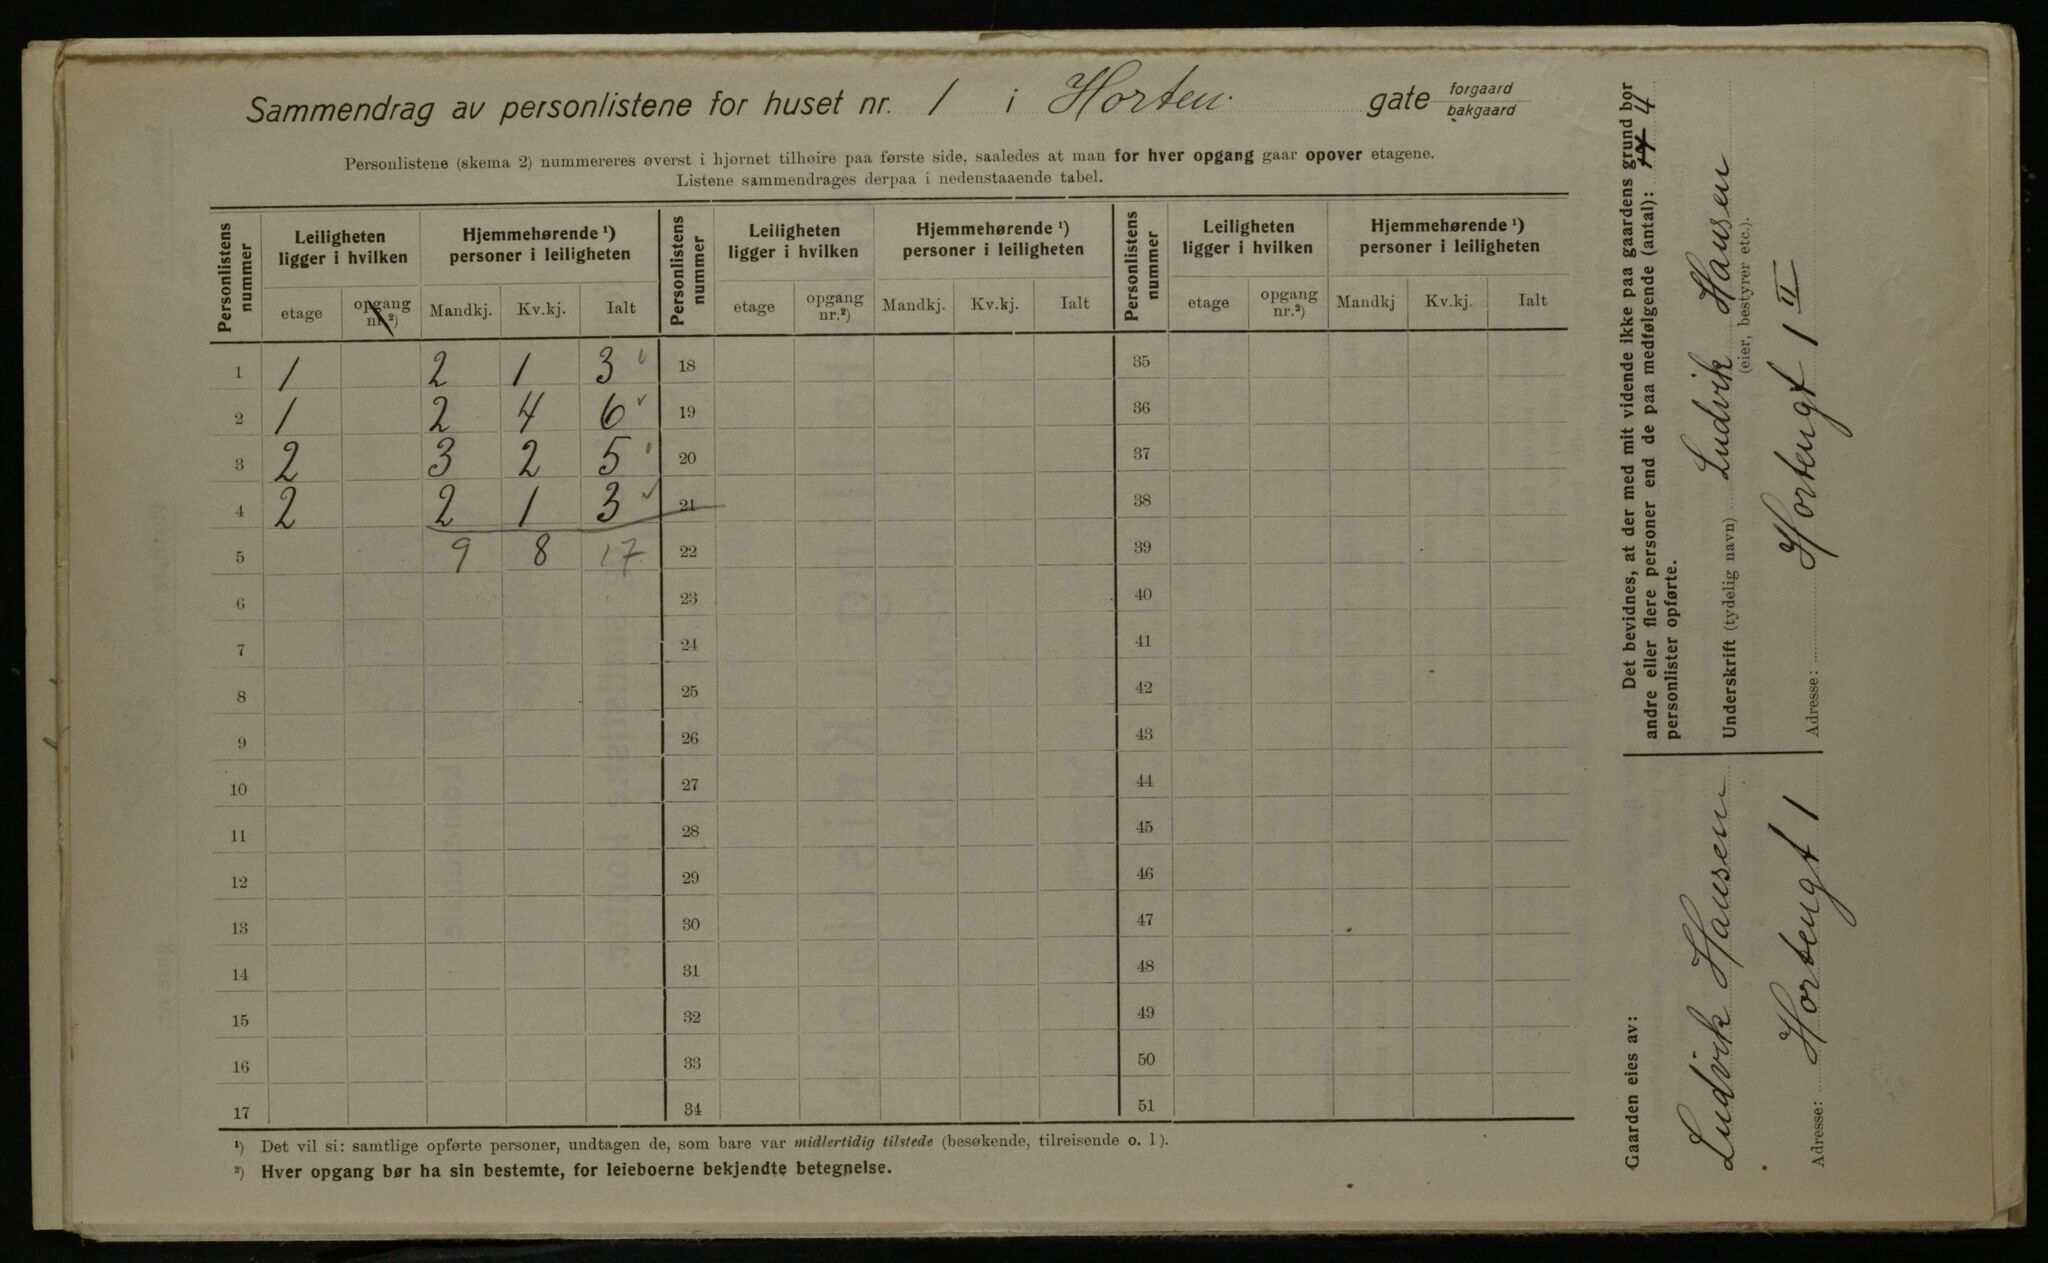 Sammendrag av personlistene for huset nr. 1 i Horten gate forgaard
bakgaard
Personlistene (skema 2) nummereres øverst i hjørnet tilhøire paa første side, saaledes at man for hver opgang gaar opover etagene.
Listene sammendrages derpaa i nedenstaaende tabel.
Personlistens nummer
Leiligheten ligger i hvilken
Hjemmehørende ¹) personer i leiligheten
Personlistens nummer
Leiligheten ligger i hvilken
Hjemmehørende ¹) personer i leiligheten
Personlistens nummer
Leiligheten ligger i hvilken
Hjemmehørende ¹) personer i leiligheten
etage opgang nr.²) Mandkj. Kv.kj. Ialt etage opgang nr.²) Mandkj. Kv.kj. Ialt etage opgang nr.²) Mandkj Kv.kj. Ialt
1 1 2 1 3 18 35
2 1 2 4 6 19 36
3 2 3 2 5 20 37
4 2 2 1 3 21 38
5 9 8 17 22 39
6 23 40
7 24 41
8 25 42
9 26 43
10 27 44
11 28 45
12 29 46
13 30 47
14 31 48
15 32 49
16 33 50
17 34 51
¹) Det vil si: samtlige opførte personer, undtagen de, som bare var midlertidig tilstede (besøkende, tilreisende o. l).
²) Hver opgang bør ha sin bestemte, for leieboerne bekjendte betegnelse.
Gaarden eies av:
Ludvik Hansen
Adresse: Hortengt 1
Det bevidnes, at der med mit vidende ikke paa gaardens grund bor
andre eller flere personer end de paa medfølgende (antal): 17 4
personlister opførte.
Underskrift (tydelig navn) Ludvik Hansen
(eier, bestyrer etc.).
Adresse: Hortengt 1 II